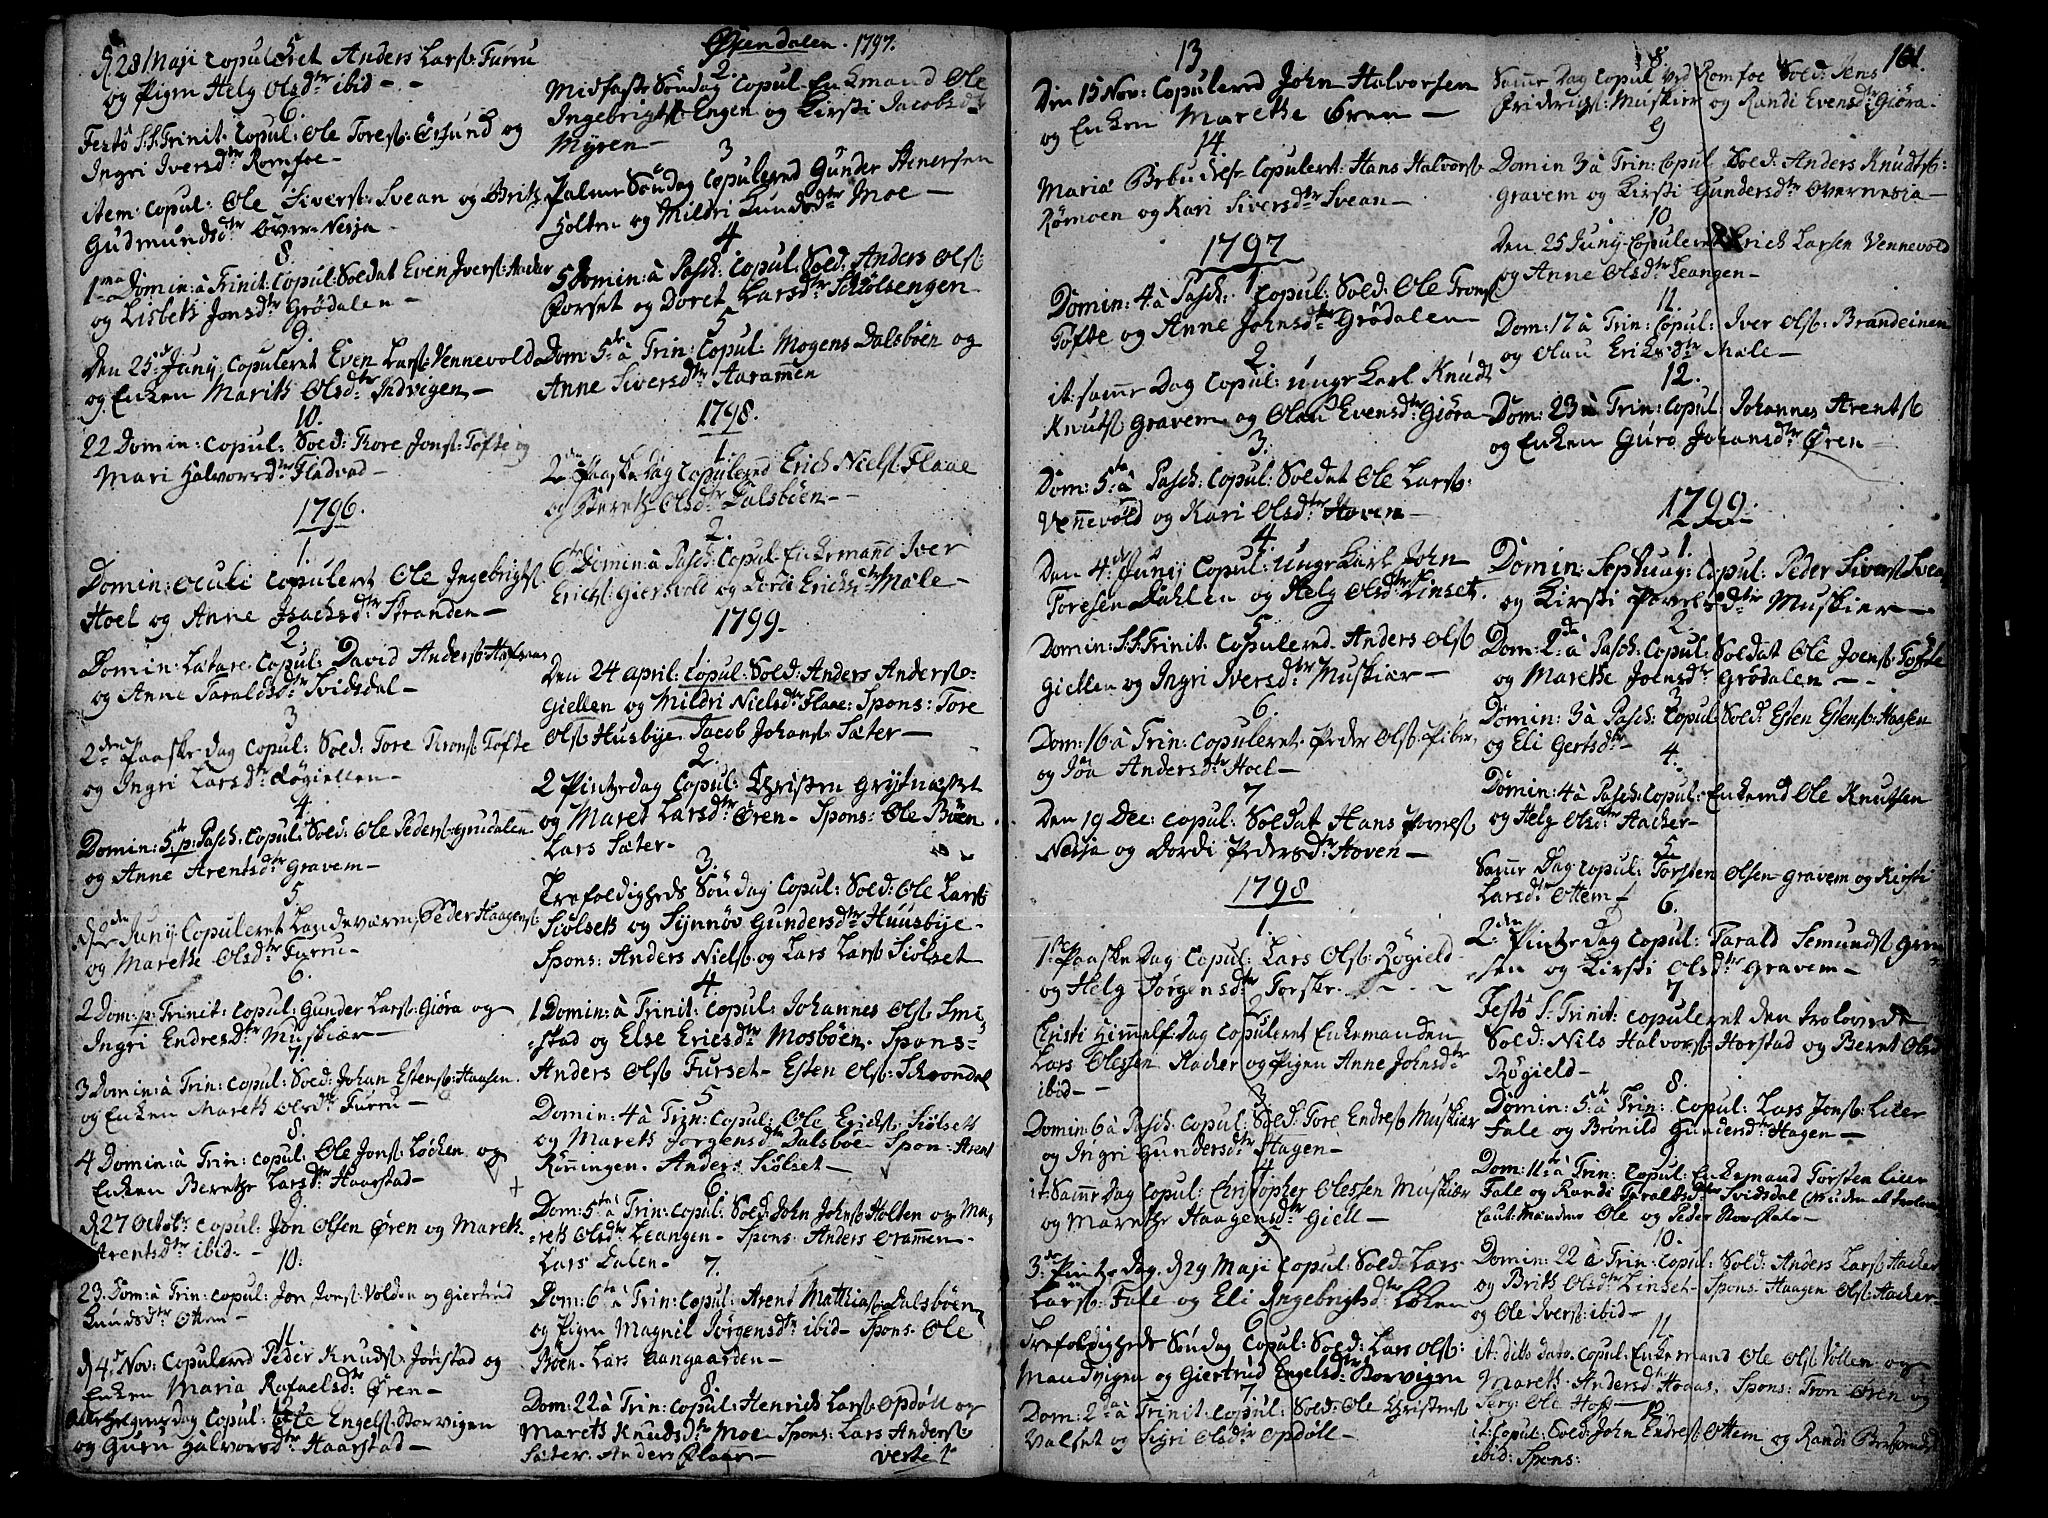 5
d 28 Maji Copuleret Anders Larsß: Furru
og Pigen Helg Olsdtr ibid —
6.
Festo S.S. Trinit. Copul: Ole Toresß: Øfsund og
Ingri Iversdtr Romfoe —
7
item: Copul: Ole Siversß: Svean og Brits
Gudmundsdtr Over-Nesja —
8
1ma Domin: à Trinit: Copul: Soldat Even Iversß:
og Lisbeth Jonsdtr Grødalen —
9.
Den 25de Junij Copuleret Even Larsß: Vennevold
og Enken Marith Olsdtr Indvigen —
10.
22 Domin: Copul: Sold: Thore Jonsß: Tofte og
Mari Halvorsdtr Fladvad —
1796.
1.
Domin: Oculi Copuleret Ole Ingebrigtsß
Hoel og Anne Isachsdtr Stranden —
2.
Domin: Lætare Copul: David Andersß
og Anne Taraldsdtr Svidsdal —
3
2den Paaske dag Copul: Sold: Tore Tronsß Tofte
og Ingri Larsdtr Røgiellen —
4.
Domin: 5te p: Pasch: Copul: Sold: Ole Pedersß: Grudalen
og Anne Arentsdtr Gravem —
5.
d 2den Junij Copuleret Landeværn: Peder Haagensß:
og Marethe Olsdtr Furru —
6.
2 Dom: p: Trinit: Copul: Gunder Larsß: Giøra og
Ingri Endresdtr Muskiær —
7
3 Domin: à Trin: Copul: Sold: Johan Estensß: Haasen
og Enken Mareth Olsdtr Furru —
8
4 Domin: à Trin: Copul: Ole Jonsß: Løcken og
Enken Berethe Larsdtr Haarstad —
9
d 27 Octobr: Copul: Jon Olsen Øren og Mareth
Arentsdtr ibid —
10.
23. Dom: à Trin: Copul: Jon Jonsß: Volden og Giertrud
Knudsdtr Ottem —
11
d 4de Nov: Copulered Peder Knudsß: Jøristad og
Enken Maria Rafaelsdtr Øren —
12
Allehelgens dag Copul: Ole Engelsß: Storvigen
og Guru Halvorsdtr Haarstad —
Øxendalen. 1797.
2.
Midfaste Søndag Copul. Enkemand Ole
Ingebrigtsß Engen og Kirsti Jacobsdtr
Myren —
3
Palme Søndag Copulered Gunder Henersen
Holten og Mildri Gundsdtr Moe —
4
5 Domin: à Pasch: Copul: Sold: Anders Olsß:
Forset og Doret Larsdtr Schølsengen
5
Dom: 5te à Trin: Copul: Mogens Dalsbøen og
Anne Siversdtr Aaramen
1798.
1.
2den Paaske Dag Copulered Erich Nielsß: Flaae
og Bereth Olsdtr Dalsbøen —
2.
6te Domin: à Pasch: Copul: Enkemand Iver
Erichsß: Giersvold og Dordi Erichsdtr Mæle —
1799.
1
Den 24 april: Copul: Sold: Anders Andersß-
Giellen og Mildri Nielsdtr Flaae: Spons: Tore
Olsß Husbije. Jacob Johansß Sæter —
2.
2 Pintzedag Copul: Christen Grytnæsset
og Maret Larsdtr Øren — Spons: Ole Bøen
Lars Sæter —
3.
Trefoldigheds Søndag Copul: Sold: Ole Larsß
Siolseth og Synnøv Gundersdtr Huusbye —
Spons: Anders Nielsß og Lars Larsß Siolset
4.
1 Domin: à Trinit: Copul: Johannes Olsß Smi-
stad og Else Ericsdtr Mosbøen. Spons —
Anders Olsß Furset — Esten Olsß: Schrondal
5
Domin: 4 à Trin: Copul: Ole Erichsß: Siolseth
og Mareth Jørgensdtr Dalsbøe — Spon: Arent
Rønningen. Anders Siolset —
6
Dom: 5te à Trin: Copul: Sold: John Johnsß: Holten og Ma-
reth Olsdtr Leangen — Spons: Anders Oramen —
Lars Dalen —
7.
Dom: 6te à Trin: Copul: Arent Mathiasß: Dalsbøen
og Pigen Magnil Jørgensdtr ibid — Spons: Ole
Bøen. Lars Aangaarden —
8
Dom: 22 à Trin: Copul: Henrich Larsß: Opdøll og
Mareth Knudsdtr Moe — Spons: Lars Andersß:
Sæter. Anders Flaae —
verte
13
Den 15 Nov: Copulered John Halvorsen
og Enken Marethe Ören —
14.
Mariæ Copuleret Hans Halvorsß:
Römoen og Kari Siversdtr Svean —
1797
1
Domin: 4 à Pasch: Copul: Sold: Ole Tronsß
Tofte og Anne Johnsdtr Grødalen
2
it: samme Dag Copul: unge Karl Knud
Knutsß Gravem og Olau Evensdtr Giöra —
3.
Dom: 5te à Pasch: Copul: Soldat Ole Larsß:
Vennevold og Kari Olsdtr Hoven —
4.
Den 4de Junij Copul: Unge Karl John
Toresen Dahlen og Helg Olsdtr Linset.
5
Domin: S.S. Trinit. Copulered. Anders Olsß
Giellen og Ingri Iversdtr Muskiær —
6.
Dom: 16 à Trin: Copuleret. Peder Olsß:
og Jöa Andersdtr Hoel —
7
Den 19 Dec: Copul: Soldat Hans
Nesja og Dordi Pedersdtr Hoven —
1798
1.
1ste Paaske Dag Copul: Lars Olsß: Røgield
og Helg Jørgensdtr Torske. —
2
Christi Himmelf: Dag Copuleret Enkemanden
Lars Olessen Hacker og Pigen Anne Johnsdtr
ibid —
3
Domin: 6 à Pasch: Copul: Sold: Tore Endresß Muskiær
og Ingri Gundersdtr Hagen —
4
it: Samme Dag Copul: Christopher Olessen Muskiær
og Marethe Haagensdtr Giell —
5
3de Pintze dag. d 29 Maji Copul: Sold: Lars
Larsß: Fale og Eli Ingebrigtsdtr Løken
6
Trefoldigheds Søndag Copul: Sold: Lars Olsß:
Maudvigen og Giertrud Engelsdtr Storvigen
7.
Dom: 2da à Trinit: Copul: Sold: Ole Christensß
Valset og Sigri Olsdtr Opdøll —
101.
8.
Samme Dag Copul ved Romfoe Sold: Jens
Fridrigsß: Muskier og Randi Evensdtr Giöra —
9
Domin 3 à Trin: Copul Sold: Anders Knudtsß:
Gravem og Kirsti Gundersdtr Overnesia —
10
Den 25 Junij Copuleret Erich Larsen Vennevold
og Anne Olsdtr Leangen —
11.
Dom: 17 à Trin: Copul: Iver Olsß: Brandeinen
og Olau Eriksdtr Mæle —
12.
Dom: 23 à Trin: Copul Johannes Arentsß
og Enken Guro Johansdtr Øren —
1799.
1.
Domin: Septuag: Copul: Peder Siversß Svean
og Kirsti Povelsdtr Muskier —
2
Dom: 2da à Pasch: Copul: Soldat Ole Joensß: Tofte
og Marethe Joensdtr Grødalen —
3
Domin: 3 à Pasch: Copul Sold: Esten Estensß: Haasen
og Eli Gertsdtr —
4.
Domin: 4 à Pasch: Copul: Enkemd Ole Knutsen
og Helg Olsdtr Hacker —
5
Samme Dag Copul: Torsten Olsen Gravem og Kirsti
Larsdtr Ottem —
6.
2den Pintze dag Copul: Tarald Semundsß
og Kirsti Olsdtr Gravem —
7
Festo S. Trinit: Copuleret den trolovede
Sold: Nils Halvorsß: Horstad og Beret Olsd
Røgield —
8.
Domin: 5te à Trin: Copul: Lars Jonsß: Lille
Fale og Brönild Gundersdtr Hagen —
9
Dom: 11te à Trin: Copul: Enkemand Torsten Lille
Fale og Randi Taraldsdtr Svidsdal
Caut: Mændene Ole og Peder
10.
Domin: 22 à Trin: Copul: Sold: Anders Larsß Hacker
og Brith Olsdtr Linset — Spons: Haagen Olsß: Hacker —
og Ole Iversß: ibid —
11
it: ditto dato. Copul: Enkemand Ole Olsß Volten og
Mareth Andersdtr Hoaas, Spons: Tron Øren og
Serg: Ole Hoff —
12
it: Copul: Sold: John Endresß Ottem og Randi
ibid: Spons: